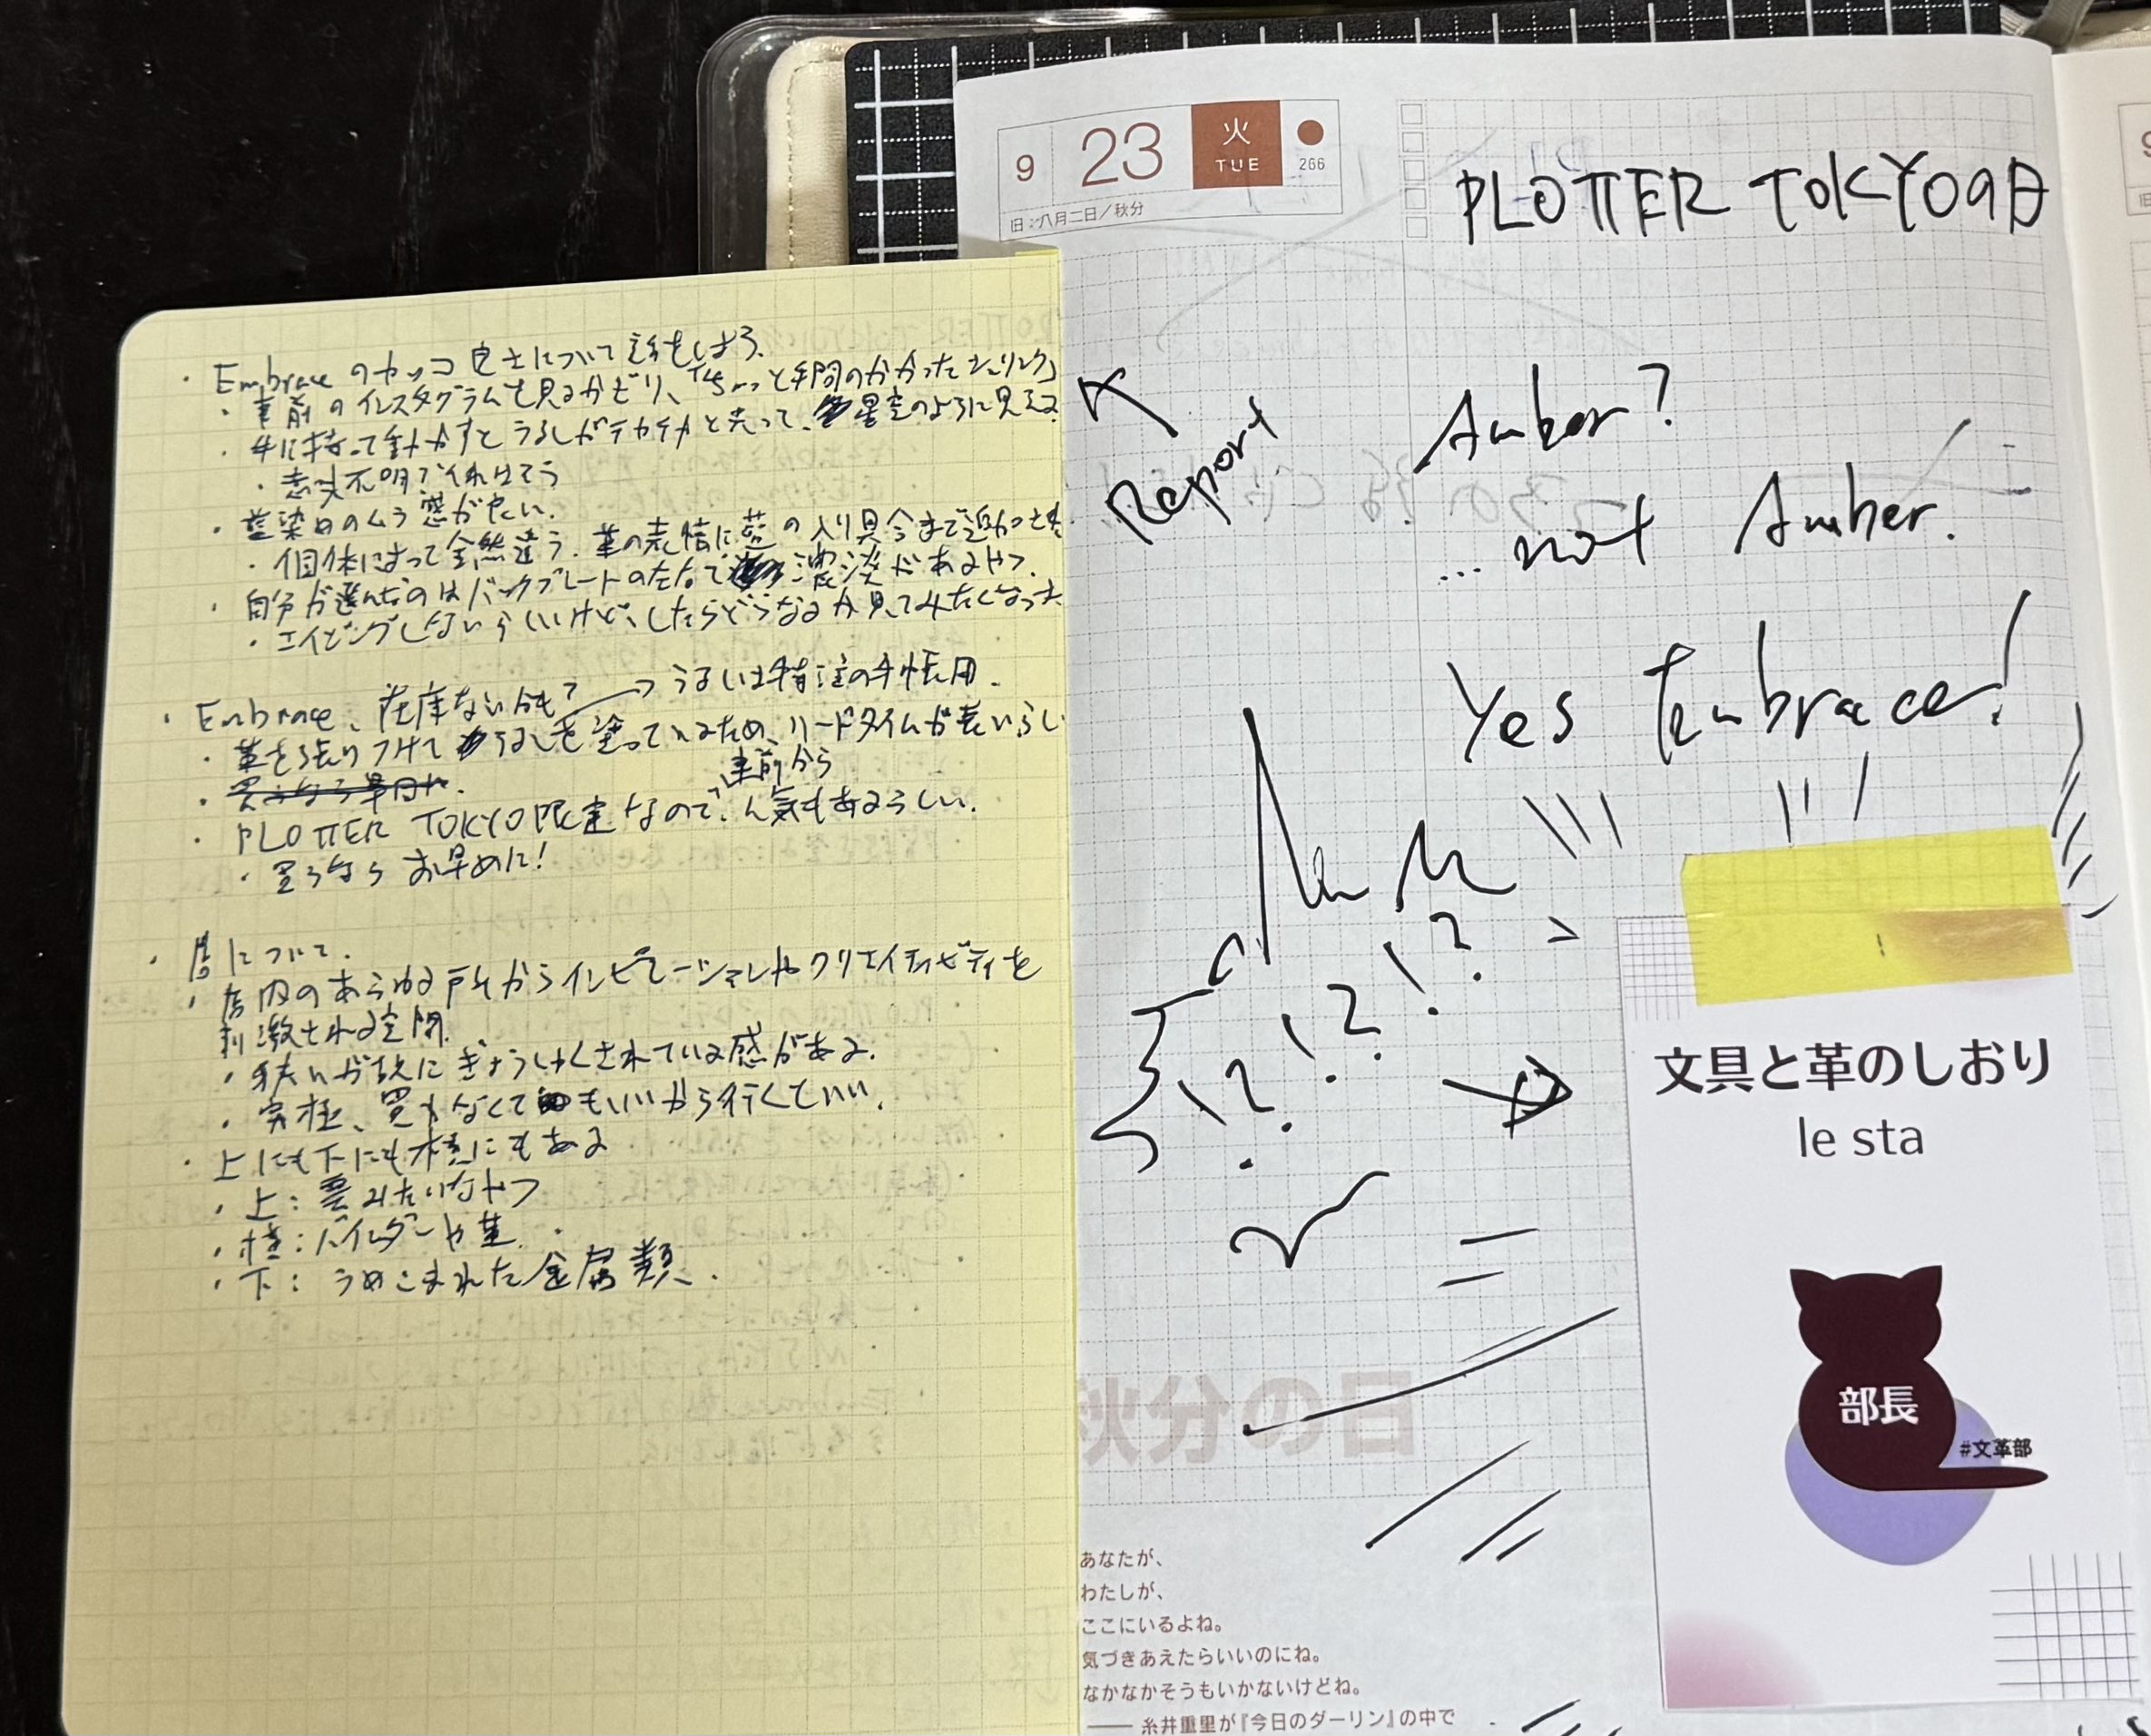 ・Embraceのカッコ良さについて話をしよう.
・事前のインスタグラムを見るかぎり、「ちょっと手間のかかったシュリンク」
・手に持って動かすとうるしがテカテカと光って、星空のように見える
・意味不明でそれはそう
・藍染めのムラ感が良い.
・個体によって全然違う. 革の表情に藍の入り具合まで追加
・自分が選んだのはバックプレートの左右で濃淡があるやつ.
・エイジングしないらしいけど、したらどうなるか見てみたくなった
・Embrace、在庫ないかも? → うるしは特注の手帳用.
・革を張りつけてうるしを塗っているため、リードタイムが長いらし
・買うなら早目に.
事前から
・PLOTTER TOKYO限定なので、人気もあるらしい.
・買うならお早めに!
・店について.
・店内のあらゆる所からインスピレーションやクリエイティビティを
刺激される空間.
・狭いが故にぎょうしゅくされている感がある.
・究極、買わなくてもいいから行くていい.
・上にも下にも横にもある
・上: 雲みたいなやつ
・横: バインダーや革.
・下: うめこまれた金属類.
9 23 火 TUE 266
旧:八月二日/秋分
PLOTTER TOKYOの日
Report
Amber?
... not Amber.
Yes Embrace!
!?
!?
!?
秋分の日
あなたが、
わたしが、
ここにいるよね。
気づきあえたらいいのにね。
なかなかそうもいかないけどね。
── 糸井重里が『今日のダーリン』の中で
文具と革のしおり
le sta
部長
#文革部